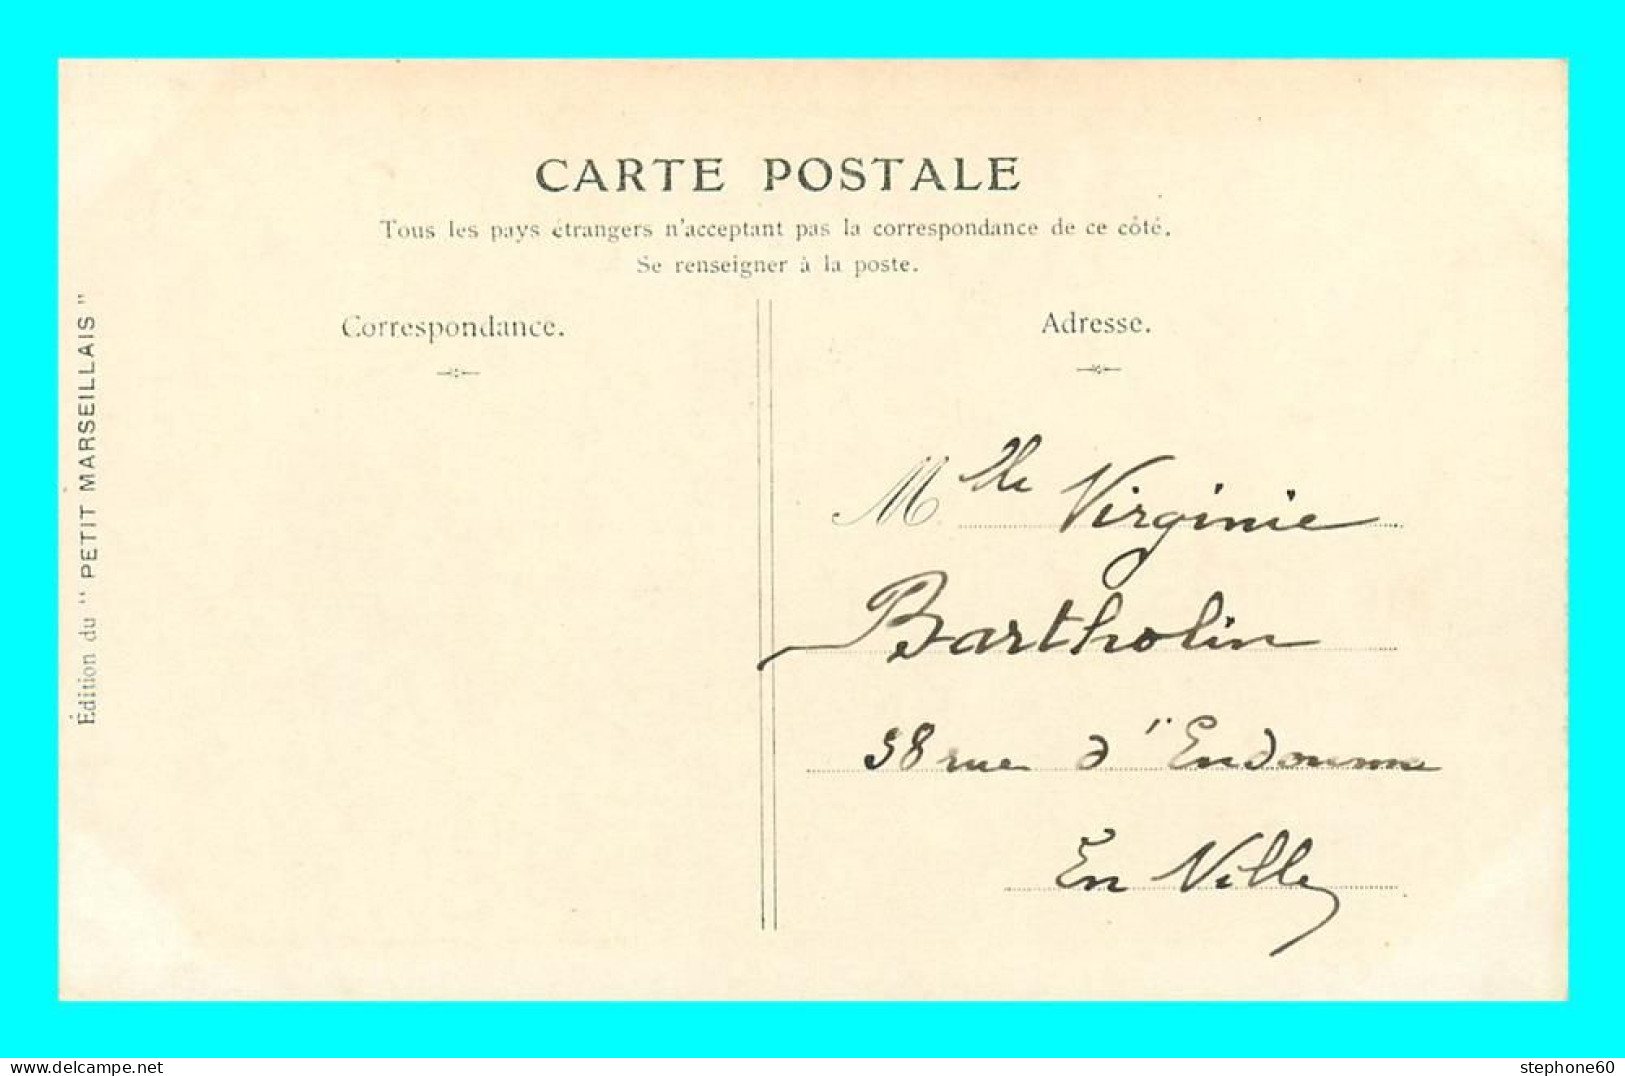 CARTE POSTALE
Tous les pays étrangers n'acceptant pas la correspondance de ce côté.
Se renseigner à la poste.
Correspondance.
Adresse.
Edition du " PETIT MARSEILLAIS "
Mlle Virginie
Bartholin
38 rue d'Endoume
En Ville
delcampe.net
stephone60